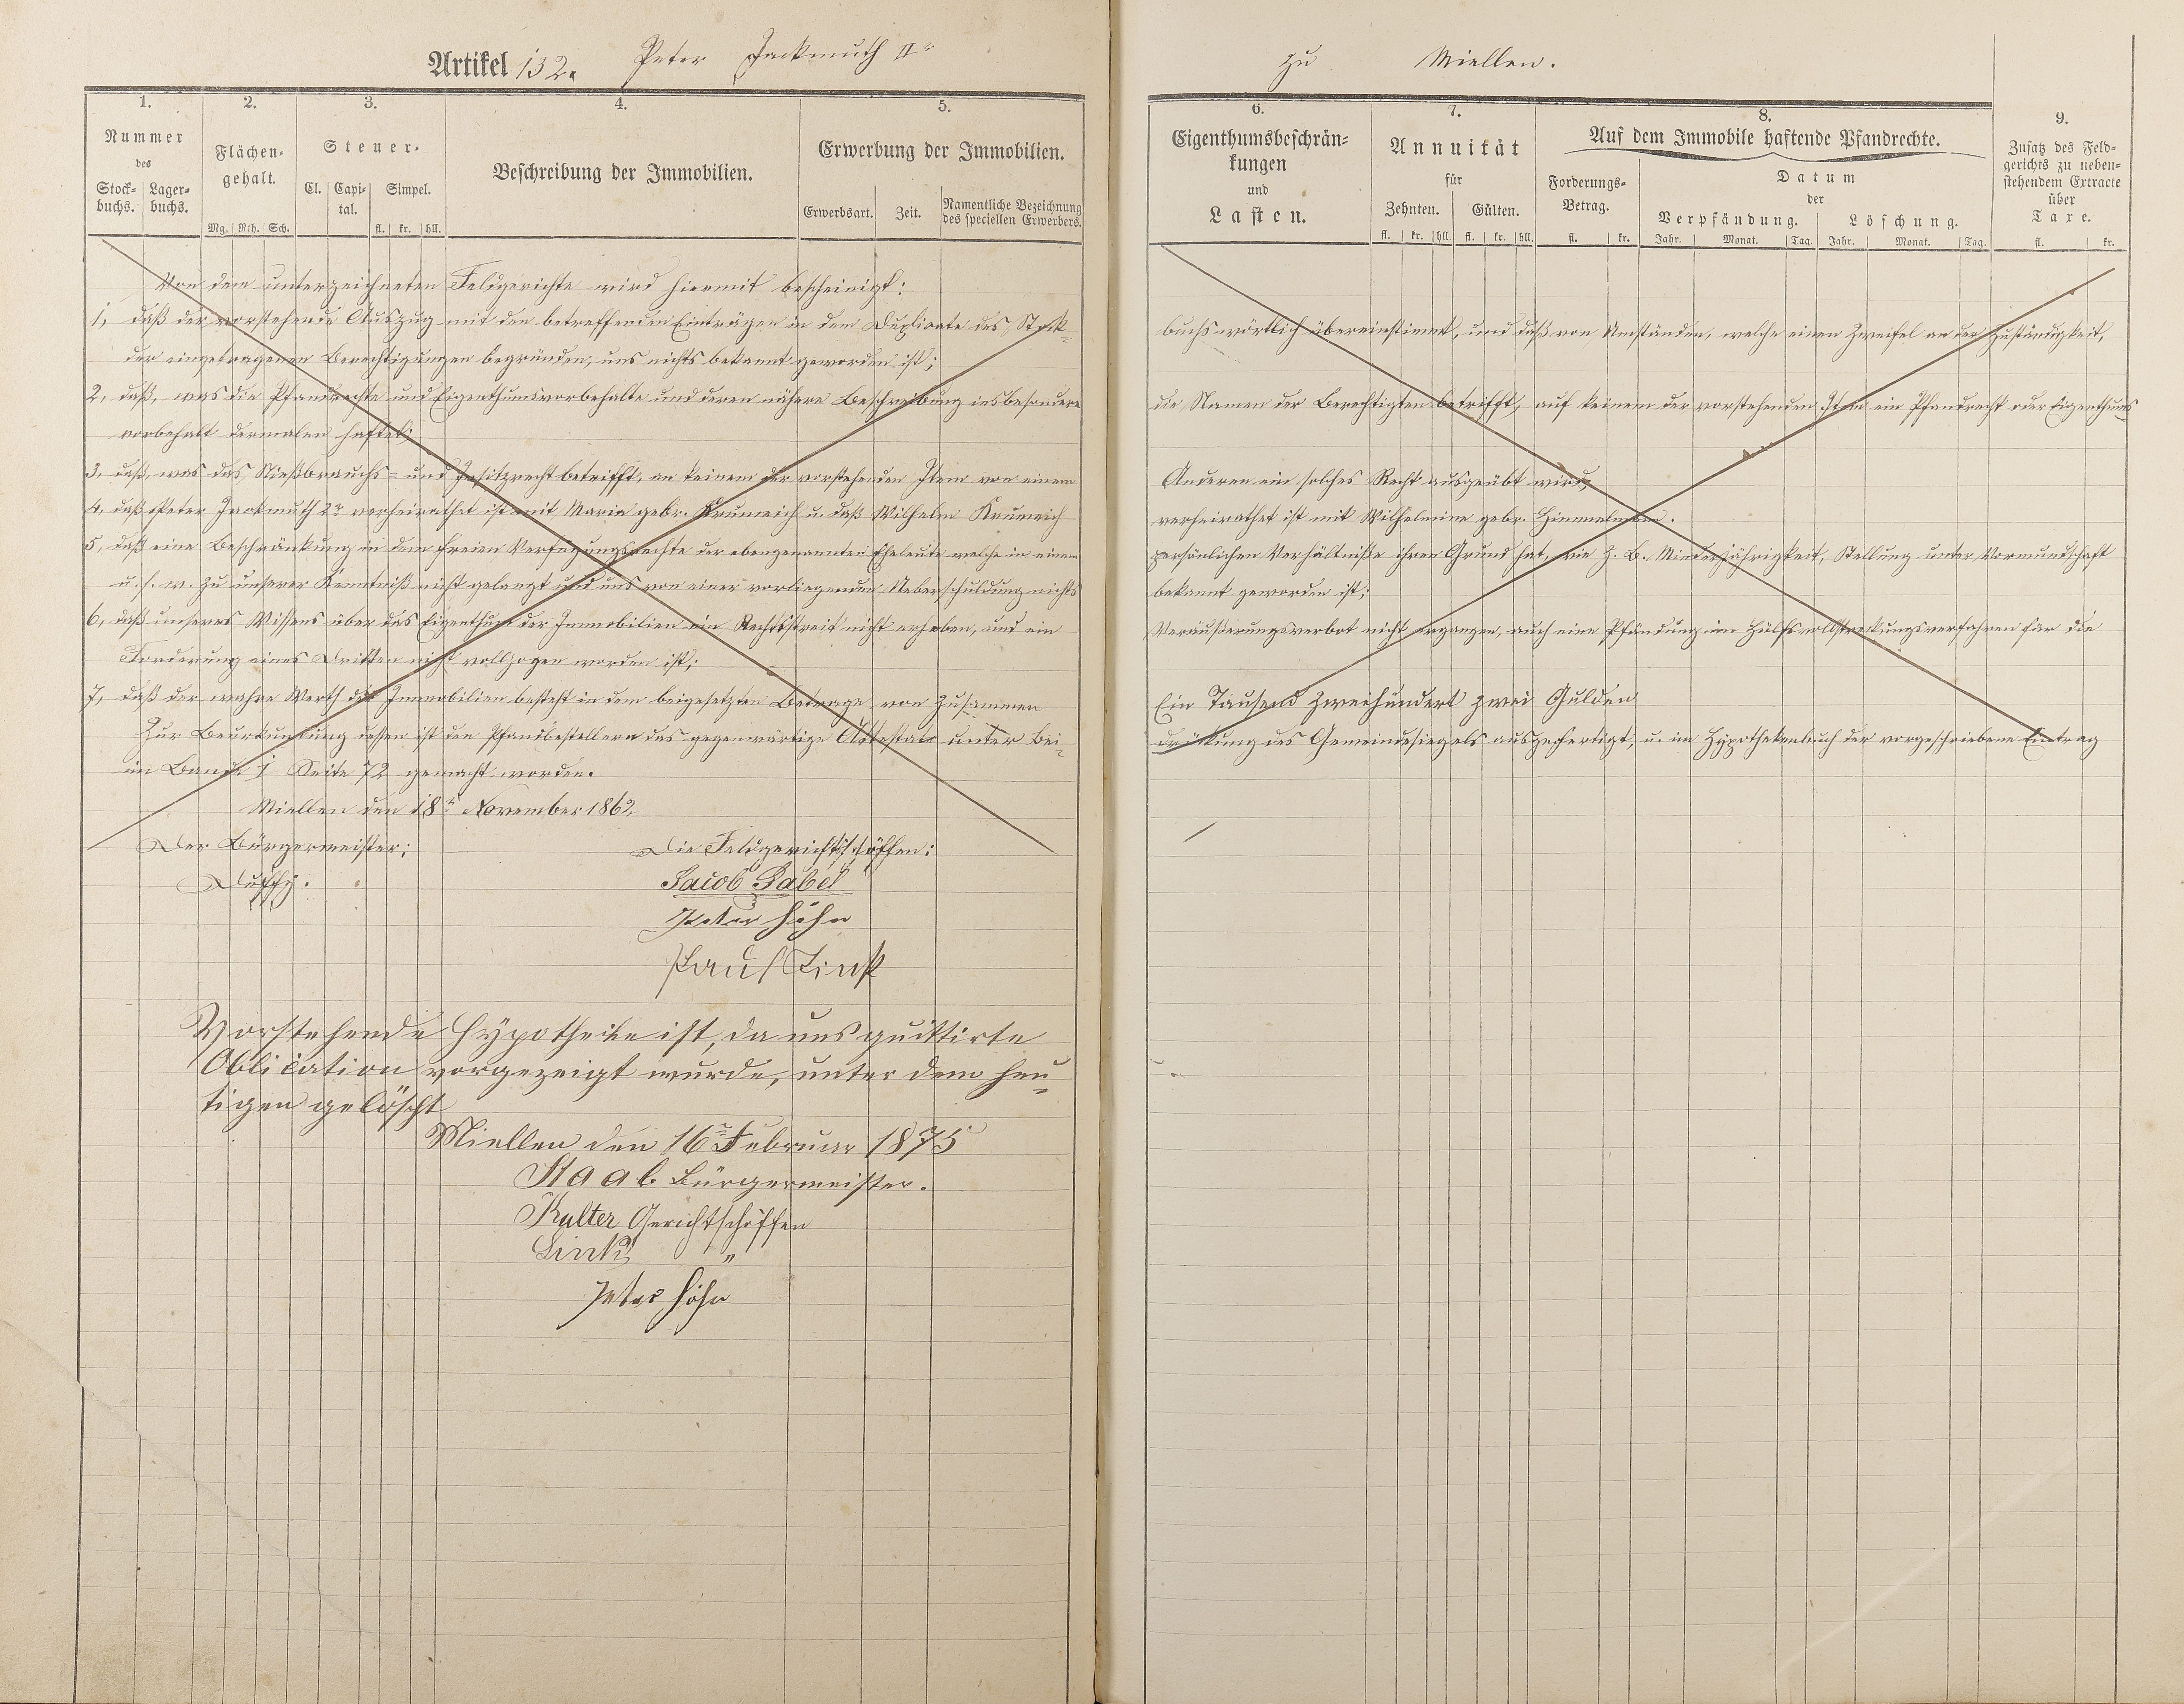 Artikel 132. Peter Jackmuth IIr zu Miellen.
1.
Nummer
des
Stock-
buchs.
Lager-
buchs.
2.
Flächen-
gehalt.
Mg. Rth. Sch.
3.
Steuer-
Cl.
Capi-
tal.
Simpel.
fl. kr. hll.
4.
Beschreibung der Immobilien.
5.
Erwerbung der Immobilien.
Erwerbsart.
Zeit.
Namentliche Bezeichnung
des speciellen Erwerbers.
6.
Eigenthumsbeschrän-
kungen
und
Lasten.
7.
Annuität
für
Zehnten. Gülten.
fl. kr. hll. fl. kr. hll.
8.
Auf dem Immobile haftende Pfandrechte.
Forderungs-
Betrag.
fl. kr.
Datum
der
Verpfändung. Löschung.
Jahr. Monat. Tag. Jahr. Monat. Tag.
9.
Zusatz des Feld-
gerichts zu neben-
stehendem Extracte
über
Taxe.
fl. kr.
Von dem unterzeichneten Feldgerichte wird hiermit bescheinigt:
1, daß der vorstehende Auszug mit den betreffenden Einträgen in dem Duplicate des Stock- buchs wörtlich übereinstimmt, und daß von Umständen, welche einen Zweifel an der Zuständigkeit,
der eingetragenen Berechtigungen begründen, uns nichts bekannt geworden ist;
2, daß, was die Pfandrechte und Eigenthumsvorbehalte und deren nähere Beschreibung insbesondere die Namen der Berechtigten betrifft, auf keinem der vorstehenden Item ein Pfandrecht oder Eigenthums-
vorbehalt dermalen haftet;
3, daß, was das Nießbrauchs- und Insitzrecht betrifft, an keinem der vorstehenden Item von einem Anderen ein solches Recht ausgeübt wird;
4, daß Peter Jackmuth 2r verheirathet ist mit Maria gebr. Krumeich u. daß Wilhelm Krumeich verheirathet ist mit Wilhelmine gebr. Himmelmann.
5, daß eine Beschränkung in dem freien Verfügungsrechte der obengenannten Eheleute welche in einem persönlichen Verhältniße ihren Grund hat, wie z. B. Minderjährigkeit, Stellung unter Vormundschaft
u. s. w. zu unserer Kenntniß nicht gelangt und uns von einer vorliegenden Ueberschuldung nichts bekannt geworden ist;
6, daß unseres Wissens über das Eigenthum der Immobilien ein Rechtsstreit nicht erhoben, und ein Veräußerungsverbot nicht ergangen, auch eine Pfändung im Hülfsvollstreckungsverfahren für die
Forderung eines Dritten nicht vollzogen worden ist;
7, daß der wahre Werth der Immobilien besteht in dem beigesetzten Betrage von zusammen Ein Tausend Zweihundert zwei Gulden
Zur Beurkundung dessen ist den Pfandbestellern das gegenwärtige Attestat unter Bei- drückung des Gemeindesiegels ausgefertigt, u. im Hypothekenbuch der vorgeschriebene Eintrag
im Bande I Seite 72 gemacht worden.
Miellen den 18n November 1862
Der Bürgermeister; Die Feldgerichtsschöffen:
Duffy. Jacob Gabel
Peter Höhn
Paul Link
Vorstehende Hypotheke ist, da uns quittirte
Oblication vorgezeigt wurde, unter dem heu-
tigen gelöscht
Miellen den 16n Februar 1875
Staab Bürgermeister.
Kulter Gerichtschöffen
Link "
Peter Höhn